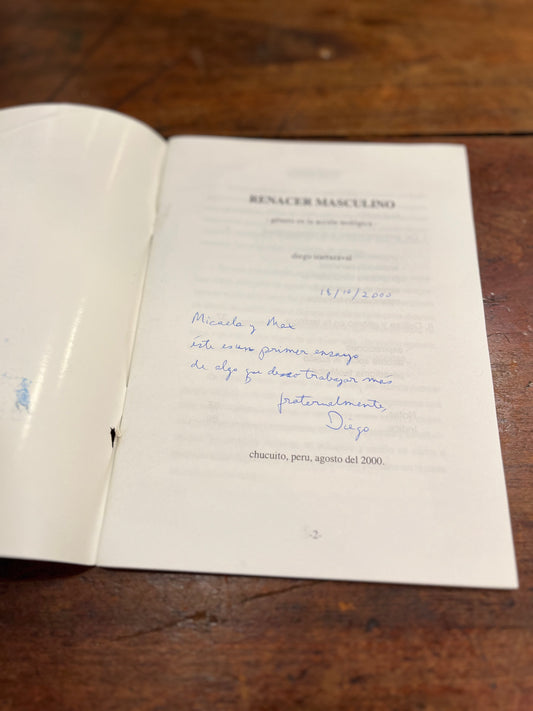 RENACER MASCULINO
género en la acción teológica
diego irarrazaval
18/10/2000
Micaela y Max
éste es un primer ensayo
de algo que deseo trabajar más
fraternalmente,
Diego
chucuito, peru, agosto del 2000.
-2-